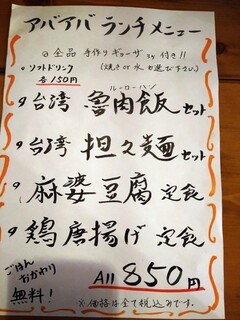 アバアバ ランチメニュー
◎全品 手作りギョーザ 付き!!
・ソフトドリンク (焼き or 水 お選び下さい)
各150円
ルーローハン
台湾 魯肉飯 セット
台湾 担々麺 セット
麻婆豆腐 定食
鶏唐揚げ 定食
ごはん
おかわり
無料!
All 850円
※価格は全て税込みです。